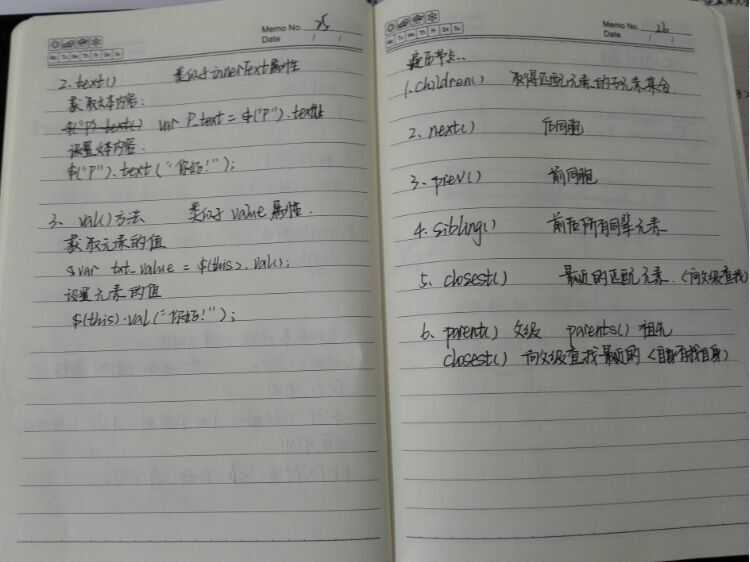 Memo No. 25
Date / /
2. text() 类似于innerText属性
获取文本内容:
$("P").text() var P_text = $("P").text
设置文本内容.
$("P").text("你好!");
3. val()方法 类似于value属性.
获取元素的值
var txt_value = $(this).val();
设置元素的值
$(this).val("你好!");
Memo No. 26
Date / /
遍历节点..
1.children() 取得匹配元素的子元素集合
2、next() 后同胞
3、prev() 前同胞
4.sibling() 前后所有同辈元素.
5、closest() 最近的匹配元素.(向父级查找)
6、parent() 父级 parents() 祖先
closest() 向父级查找最近的(自身有找自身)